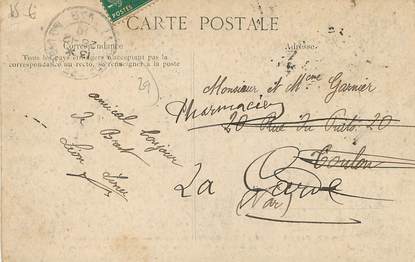 CARTE POSTALE
Correspondance
Tous les pays étrangers n'acceptant pas la
correspondance au recto, se renseigner à la poste
Adresse
29)
amical bonjour
de Brest
Léon
Monsieur et Mme Garnier
Pharmacien
20 Rue du Puits 20
Toulon
La Garde
(Var)